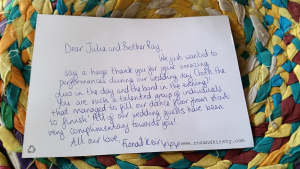 Dear Julia and Brother Ray,
We just wanted to
say a huge thank you for your amazing
performances during our wedding day (both the
duo in the day and the band in the evening)!
You are such a talented group of individuals
that managed to fill our dance floor from start
to finish! All of our wedding guests have been
very complimentary towards you!
All our love,